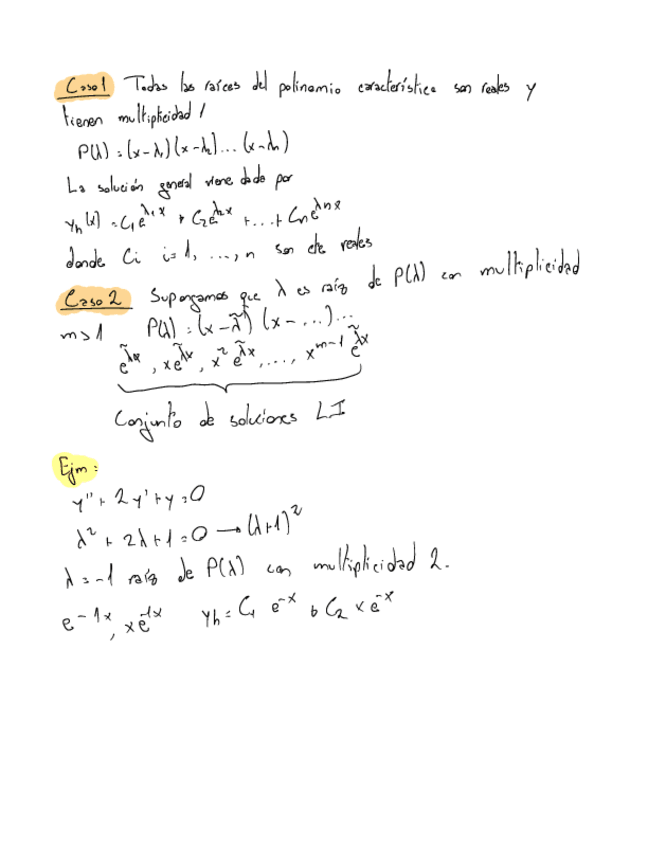 Caso 1 Todas las raíces del polinomio característico son reales y
tienen multiplicidad 1
P(λ) = (x-λ₁)(x-λ₂)...(x-λₙ)
La solución general viene dada por
yₕ(x) = C₁e^λ₁x + C₂e^λ₂x + ... + Cₙe^λₙx
donde Ci i=1, ..., n son cte reales
Caso 2 Supongamos que λ es raíz de P(λ) con multiplicidad
m>1 P(λ) = (x-λ̃) (x-...)...
e^λ̃x, xe^λ̃x, x²e^λ̃x, ..., x^m-1 e^λ̃x
Conjunto de soluciones LI
Ejm:
y''+2y'+y=0
λ²+2λ+1=0 → (λ+1)²
λ=-1 raíz de P(λ) con multiplicidad 2.
e^-1x, xe^-1x yₕ = C₁ e^-x + C₂ x e^-x